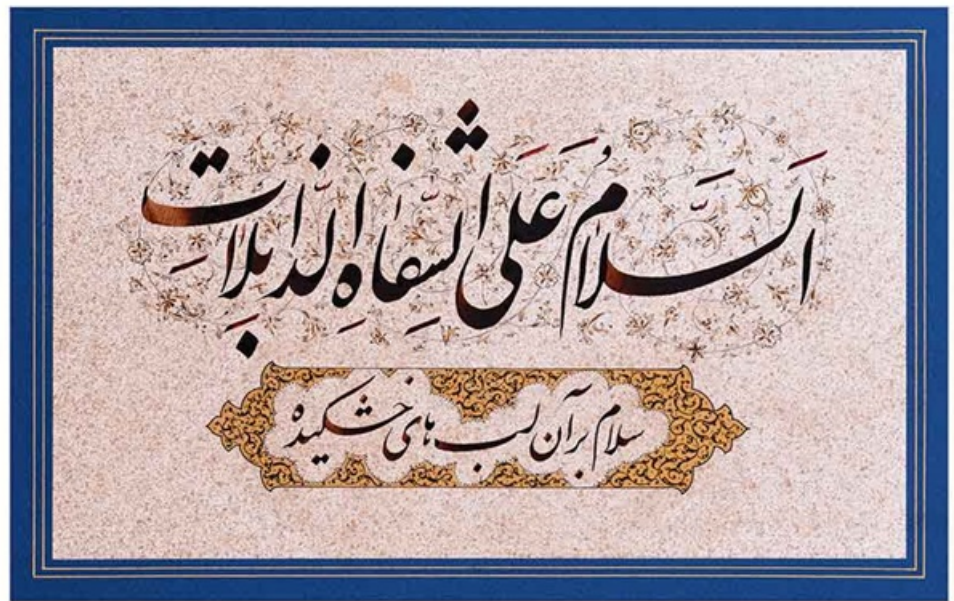 اَلسَّلامُ عَلَی الشِّفاهِ الذّابِلاتِ
سلام بر آن لب های خشکیده